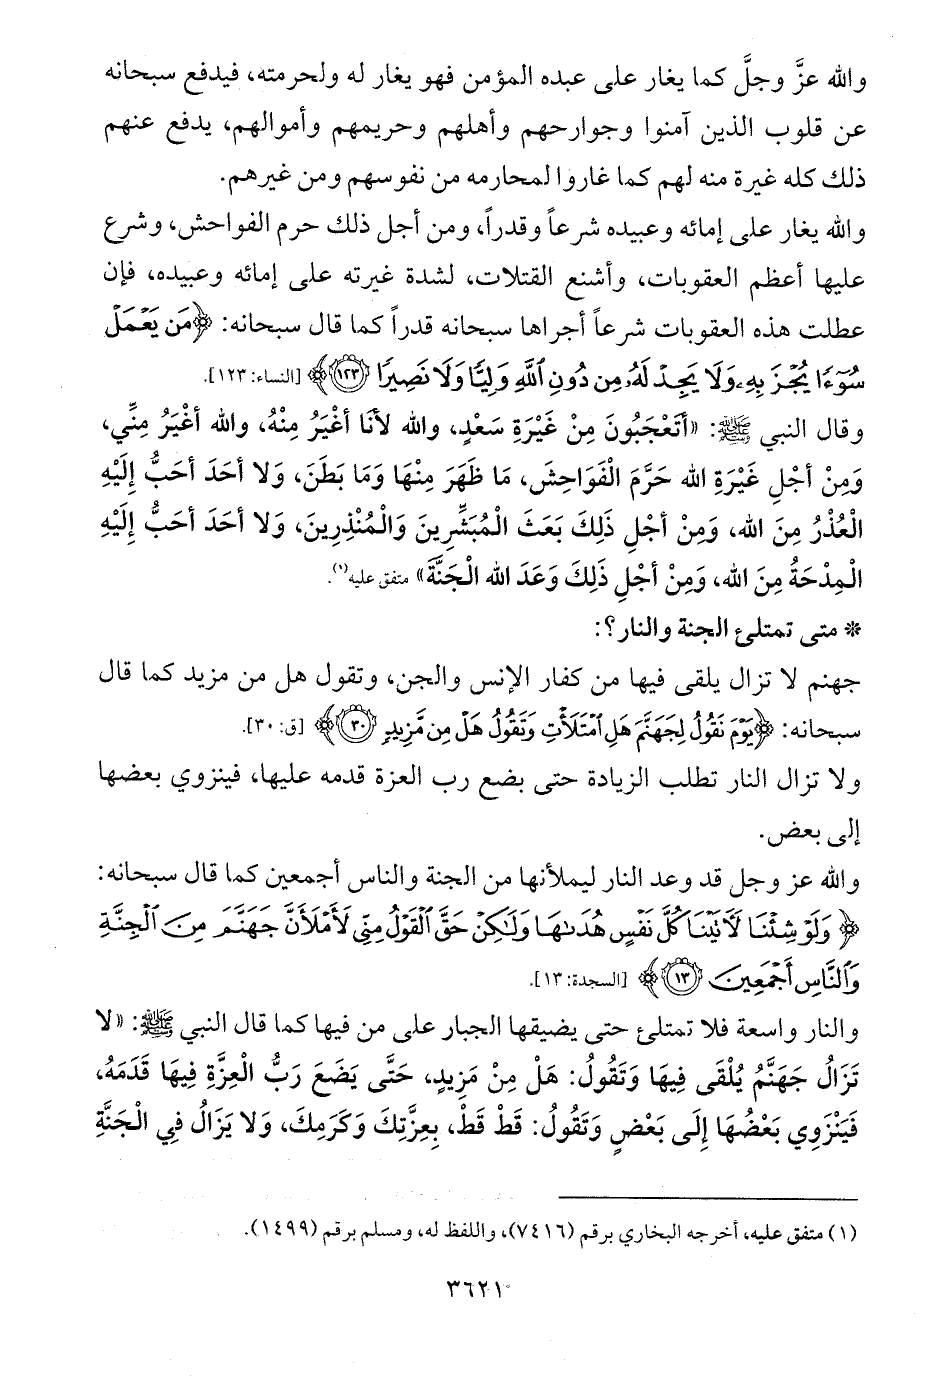 والله عزَّ وجلَّ كما يغار على عبده المؤمن فهو يغار له ولحرمته، فيدفع سبحانه
عن قلوب الذين آمنوا وجوارحهم وأهلهم وحريمهم وأموالهم، يدفع عنهم
ذلك كله غيرة منه لهم كما غاروا لمحارمه من نفوسهم ومن غيرهم.
والله يغار على إمائه وعبيده شرعاً وقدراً، ومن أجل ذلك حرم الفواحش، وشرع
عليها أعظم العقوبات، وأشنع القتلات، لشدة غيرته على إمائه وعبيده، فإن
عطلت هذه العقوبات شرعاً أجراها سبحانه قدراً كما قال سبحانه: ﴿مَن يَعْمَلْ
سُوٓءًا يُجْزَ بِهِۦ وَلَا يَجِدْ لَهُۥ مِن دُونِ ٱللَّهِ وَلِيًّا وَلَا نَصِيرًا ١٢٣﴾ [النساء: ١٢٣].
وقال النبي ﷺ: «أتَعْجَبُونَ مِنْ غَيْرَةِ سَعْدٍ، والله لأنَا أغْيَرُ مِنْهُ، والله أغْيَرُ مِنِّي،
وَمِنْ أجْلِ غَيْرَةِ الله حَرَّمَ الْفَوَاحِشَ، مَا ظَهَرَ مِنْهَا وَمَا بَطَنَ، وَلا أحَدَ أحَبُّ إِلَيْهِ
الْعُذْرُ مِنَ الله، وَمِنْ أجْلِ ذَلِكَ بَعَثَ الْمُبَشِّرِينَ وَالْمُنْذِرِينَ، وَلا أحَدَ أحَبُّ إِلَيْهِ
الْمِدْحَةُ مِنَ الله، وَمِنْ أجْلِ ذَلِكَ وَعَدَ الله الْجَنَّةَ» متفق عليه(١).
* متى تمتلئ الجنة والنار؟:
جهنم لا تزال يلقى فيها من كفار الإنس والجن، وتقول هل من مزيد كما قال
سبحانه: ﴿يَوْمَ نَقُولُ لِجَهَنَّمَ هَلِ ٱمْتَلَأْتِ وَتَقُولُ هَلْ مِن مَّزِيدٍ ٣٠﴾ [ق: ٣٠].
ولا تزال النار تطلب الزيادة حتى يضع رب العزة قدمه عليها، فينزوي بعضها
إلى بعض.
والله عز وجل قد وعد النار ليملأنها من الجنة والناس أجمعين كما قال سبحانه:
﴿وَلَوْ شِئْنَا لَأٓتَيْنَا كُلَّ نَفْسٍ هُدَىٰهَا وَلَٰكِنْ حَقَّ ٱلْقَوْلُ مِنِّي لَأَمْلَأَنَّ جَهَنَّمَ مِنَ ٱلْجِنَّةِ
وَٱلنَّاسِ أَجْمَعِينَ ١٣﴾ [السجدة: ١٣].
والنار واسعة فلا تمتلئ حتى يضيقها الجبار على من فيها كما قال النبي ﷺ: «لا
تَزَالُ جَهَنَّمُ يُلْقَى فِيهَا وَتَقُولُ: هَلْ مِنْ مَزِيدٍ، حَتَّى يَضَعَ رَبُّ الْعِزَّةِ فِيهَا قَدَمَهُ،
فَيَنْزَوِي بَعْضُهَا إِلَى بَعْضٍ وَتَقُولُ: قَطْ قَطْ، بِعِزَّتِكَ وَكَرَمِكَ، وَلا يَزَالُ فِي الْجَنَّةِ
(١) متفق عليه، أخرجه البخاري برقم (٧٤١٦)، واللفظ له، ومسلم برقم (١٤٩٩).
٣٦٢١